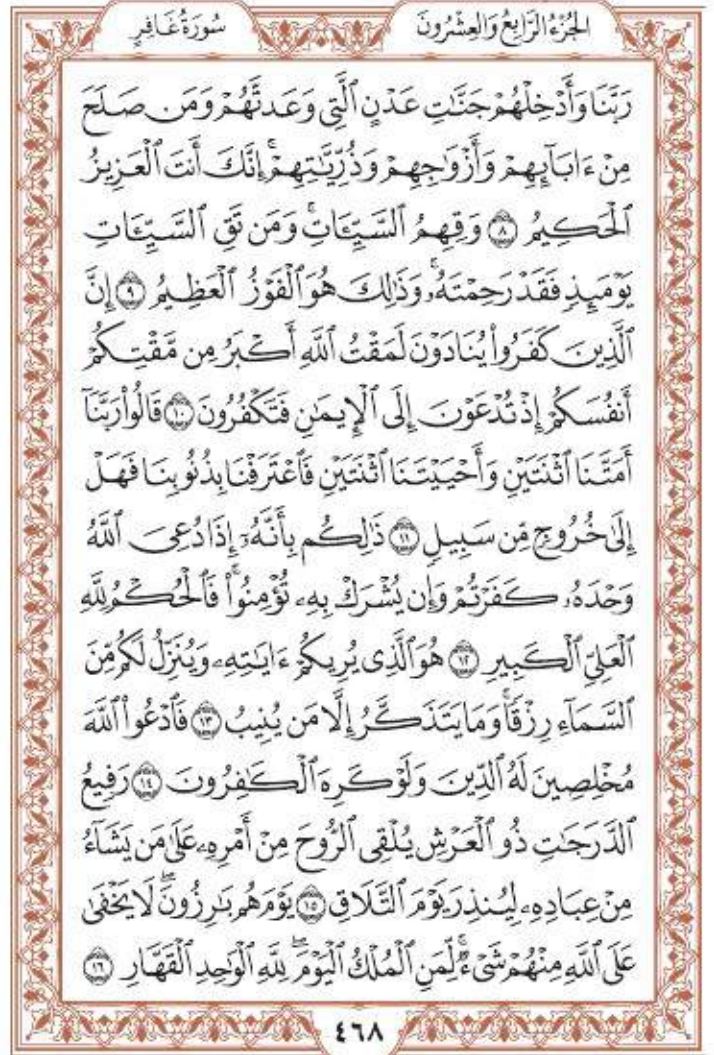 الجُزْءُ الرَّابِعُ وَالعِشْرُونَ
سُورَةُ غَافِرٍ
رَبَّنَا وَأَدْخِلْهُمْ جَنَّٰتِ عَدْنٍ ٱلَّتِى وَعَدتَّهُمْ وَمَن صَلَحَ
مِنْ ءَابَآئِهِمْ وَأَزْوَٰجِهِمْ وَذُرِّيَّٰتِهِمْۚ إِنَّكَ أَنتَ ٱلْعَزِيزُ
ٱلْحَكِيمُ ٨ وَقِهِمُ ٱلسَّيِّـَٔاتِۚ وَمَن تَقِ ٱلسَّيِّـَٔاتِ
يَوْمَئِذٍ فَقَدْ رَحِمْتَهُۥۚ وَذَٰلِكَ هُوَ ٱلْفَوْزُ ٱلْعَظِيمُ ٩ إِنَّ
ٱلَّذِينَ كَفَرُوا۟ يُنَادَوْنَ لَمَقْتُ ٱللَّهِ أَكْبَرُ مِن مَّقْتِكُمْ
أَنفُسَكُمْ إِذْ تُدْعَوْنَ إِلَى ٱلْإِيمَٰنِ فَتَكْفُرُونَ ١٠ قَالُوا۟ رَبَّنَآ
أَمَتَّنَا ٱثْنَتَيْنِ وَأَحْيَيْتَنَا ٱثْنَتَيْنِ فَٱعْتَرَفْنَا بِذُنُوبِنَا فَهَلْ
إِلَىٰ خُرُوجٍ مِّن سَبِيلٍ ١١ ذَٰلِكُم بِأَنَّهُۥٓ إِذَا دُعِىَ ٱللَّهُ
وَحْدَهُۥ كَفَرْتُمْ وَإِن يُشْرَكْ بِهِۦ تُؤْمِنُوا۟ۚ فَٱلْحُكْمُ لِلَّهِ
ٱلْعَلِىِّ ٱلْكَبِيرِ ١٢ هُوَ ٱلَّذِى يُرِيكُمْ ءَايَٰتِهِۦ وَيُنَزِّلُ لَكُم مِّنَ
ٱلسَّمَآءِ رِزْقًاۚ وَمَا يَتَذَكَّرُ إِلَّا مَن يُنِيبُ ١٣ فَٱدْعُوا۟ ٱللَّهَ
مُخْلِصِينَ لَهُ ٱلدِّينَ وَلَوْ كَرِهَ ٱلْكَٰفِرُونَ ١٤ رَفِيعُ
ٱلدَّرَجَٰتِ ذُو ٱلْعَرْشِ يُلْقِى ٱلرُّوحَ مِنْ أَمْرِهِۦ عَلَىٰ مَن يَشَآءُ
مِنْ عِبَادِهِۦ لِيُنذِرَ يَوْمَ ٱلتَّلَاقِ ١٥ يَوْمَ هُم بَٰرِزُونَۖ لَا يَخْفَىٰ
عَلَى ٱللَّهِ مِنْهُمْ شَىْءٌۚ لِّمَنِ ٱلْمُلْكُ ٱلْيَوْمَۖ لِلَّهِ ٱلْوَٰحِدِ ٱلْقَهَّارِ ١٦
٤٦٨